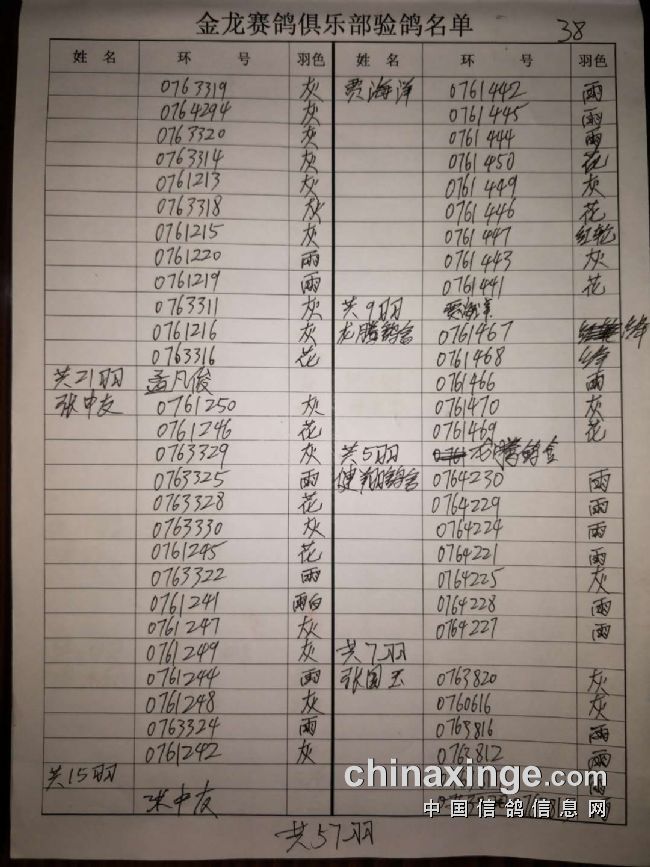 金龙赛鸽俱乐部验鸽名单
38
姓 名 环 号 羽色
0763319 灰
0764294 灰
0763320 灰
0763314 灰
0761213 灰
0763318 灰
0761215 灰
0761220 雨
0761219 雨
0763311 灰
0761216 灰
0763316 花
共21羽 孟凡俊
张中友 0761250 灰
0761246 花
0763329 灰
0763325 雨
0763328 花
0763330 灰
0761245 花
0763322 雨
0761241 雨白
0761247 灰
0761249 灰
0761244 雨
0761248 灰
0763324 雨
0761242 灰
共15羽
张中友
姓 名 环 号 羽色
贾海洋 0761442 雨
0761445 雨
0761444 雨
0761450 花
0761449 灰
0761446 花
0761447 红轮
0761443 灰
0761441 花
共9羽 贾海洋
龙腾鸽舍 0761467 绛
0761468 绛
0761466 雨
0761470 灰
0761469 花
共5羽 龙腾鸽舍
健翔鸽舍 0764230 雨
0764229 雨
0764224 雨
0764221 雨
0764225 灰
0764228 雨
0764227 雨
共7羽
张国玉 0763820 灰
0760616 灰
0763816 雨
0763812 雨
雨
共57羽
chinaxinge.com
中国信鸽信息网